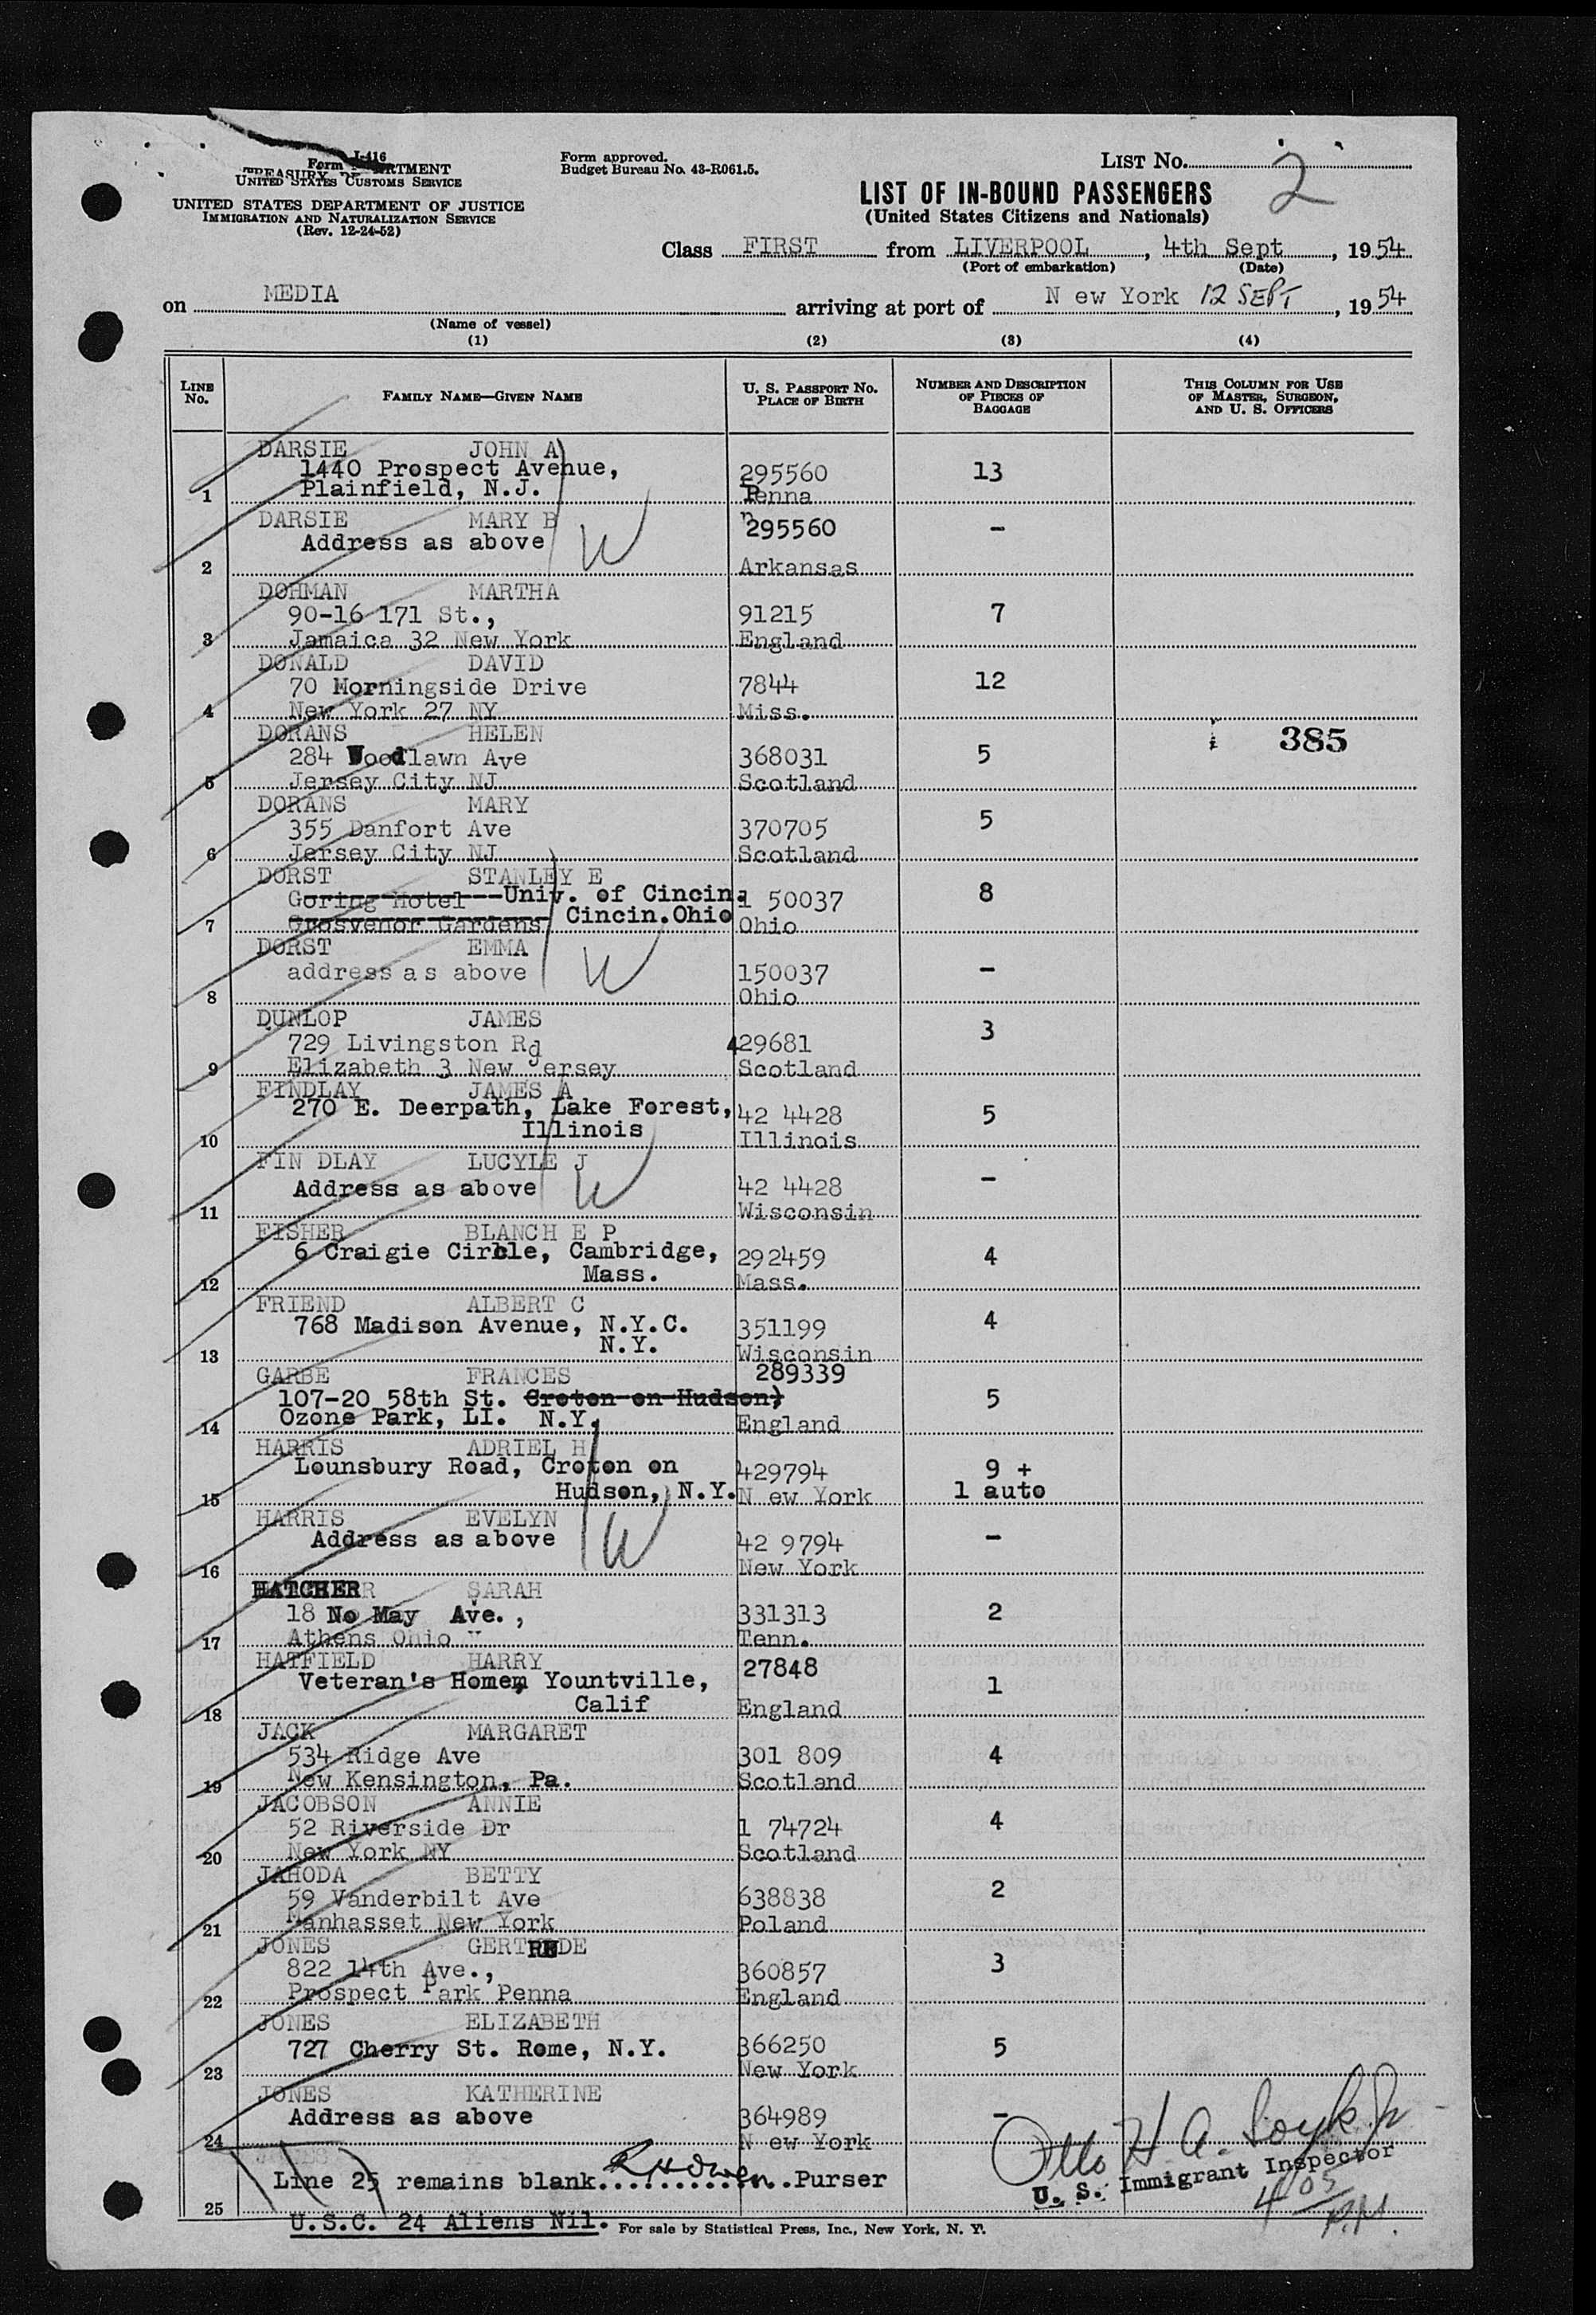 Form I-416
TREASURY DEPARTMENT
UNITED STATES CUSTOMS SERVICE
UNITED STATES DEPARTMENT OF JUSTICE
IMMIGRATION AND NATURALIZATION SERVICE
(Rev. 12-24-52)
Form approved.
Budget Bureau No. 43-R061.5.
LIST No. 2
LIST OF IN-BOUND PASSENGERS
(United States Citizens and Nationals)
Class FIRST from LIVERPOOL, 4th Sept, 1954
(Port of embarkation) (Date)
on MEDIA arriving at port of N ew York 12 SEPT, 1954
(Name of vessel)
(1) (2) (3) (4)
LINE No. FAMILY NAME—GIVEN NAME U. S. PASSPORT No. PLACE OF BIRTH NUMBER AND DESCRIPTION OF PIECES OF BAGGAGE THIS COLUMN FOR USE OF MASTER, SURGEON, AND U. S. OFFICERS
DARSIE JOHN A
1440 Prospect Avenue, 295560 13
1 Plainfield, N.J. Penna
DARSIE MARY B 295560 -
Address as above W
2 Arkansas
DOHMAN MARTHA
90-16 171 St., 91215 7
3 Jamaica 32 New York England
DONALD DAVID
70 Morningside Drive 7844 12
4 New York 27 NY Miss.
DORANS HELEN 385
284 Woodlawn Ave 368031 5
5 Jersey City NJ Scotland
DORANS MARY
355 Danfort Ave 370705 5
6 Jersey City NJ Scotland
DORST STANLEY E
Goring Hotel --Univ. of Cincin. 1 50037 8
7 Grosvenor Gardens Cincin.Ohio Ohio
DORST EMMA
address as above W 150037 -
8 Ohio
DUNLOP JAMES
729 Livingston Rd 429681 3
9 Elizabeth 3 New Jersey Scotland
FINDLAY JAMES A
270 E. Deerpath, Lake Forest, 42 4428 5
10 Illinois Illinois
FIN DLAY LUCYLE J
Address as above W 42 4428 -
11 Wisconsin
FISHER BLANCH E P
6 Craigie Circle, Cambridge, 292459 4
12 Mass. Mass.
FRIEND ALBERT C
768 Madison Avenue, N.Y.C. 351199 4
13 N.Y. Wisconsin
GARBE FRANCES 289339
107-20 58th St. Croton on Hudson) 5
14 Ozone Park, LI. N.Y. England
HARRIS ADRIEL H
Lounsbury Road, Croton on 429794 9 +
15 Hudson, N.Y. N ew York 1 auto
HARRIS EVELYN
Address as above W 42 9794 -
16 New York
HATCHER SARAH
18 No May Ave., 331313 2
17 Athens Ohio Tenn.
HATFIELD HARRY 27848
Veteran's Home, Yountville, 1
18 Calif England
JACK MARGARET
534 Ridge Ave 301 809 4
19 New Kensington, Pa. Scotland
JACOBSON ANNIE
52 Riverside Dr 1 74724 4
20 New York NY Scotland
JAHODA BETTY
59 Vanderbilt Ave 638838 2
21 Manhasset New York Poland
JONES GERTRUDE
822 14th Ave., 360857 3
22 Prospect Park Penna England
JONES ELIZABETH
727 Cherry St. Rome, N.Y. 366250 5
23 New York
JONES KATHERINE
Address as above 364989 -
24 N ew York
Line 25 remains blank. R H Owen Purser
25
Otto H. A.
U. S. Immigrant Inspector
4 05 P.M.
U.S.C. 24 Aliens Nil.
For sale by Statistical Press, Inc., New York, N. Y.